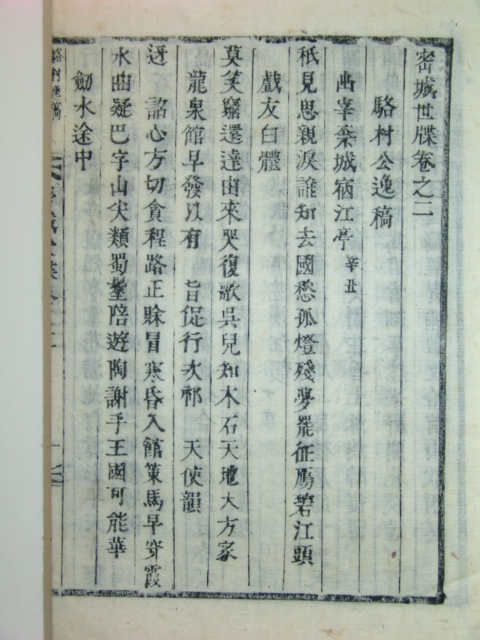 密城世牒卷之二
駱村公逸稿
出宰棄城宿江亭 辛丑
秪見思親淚誰知去國愁孤燈殘夢罷征鴈碧江頭
戲友白體
莫笑窮還達由來哭復歌吳兒知木石天地大方家
龍泉館早發以有 旨促行次祁 天使韻
迓 詔心方切貪程路正賖冒寒昏入館策馬早穿霞
水曲疑巴字山尖類蜀鬟陪遊陶謝手王國可能華
劒水途中